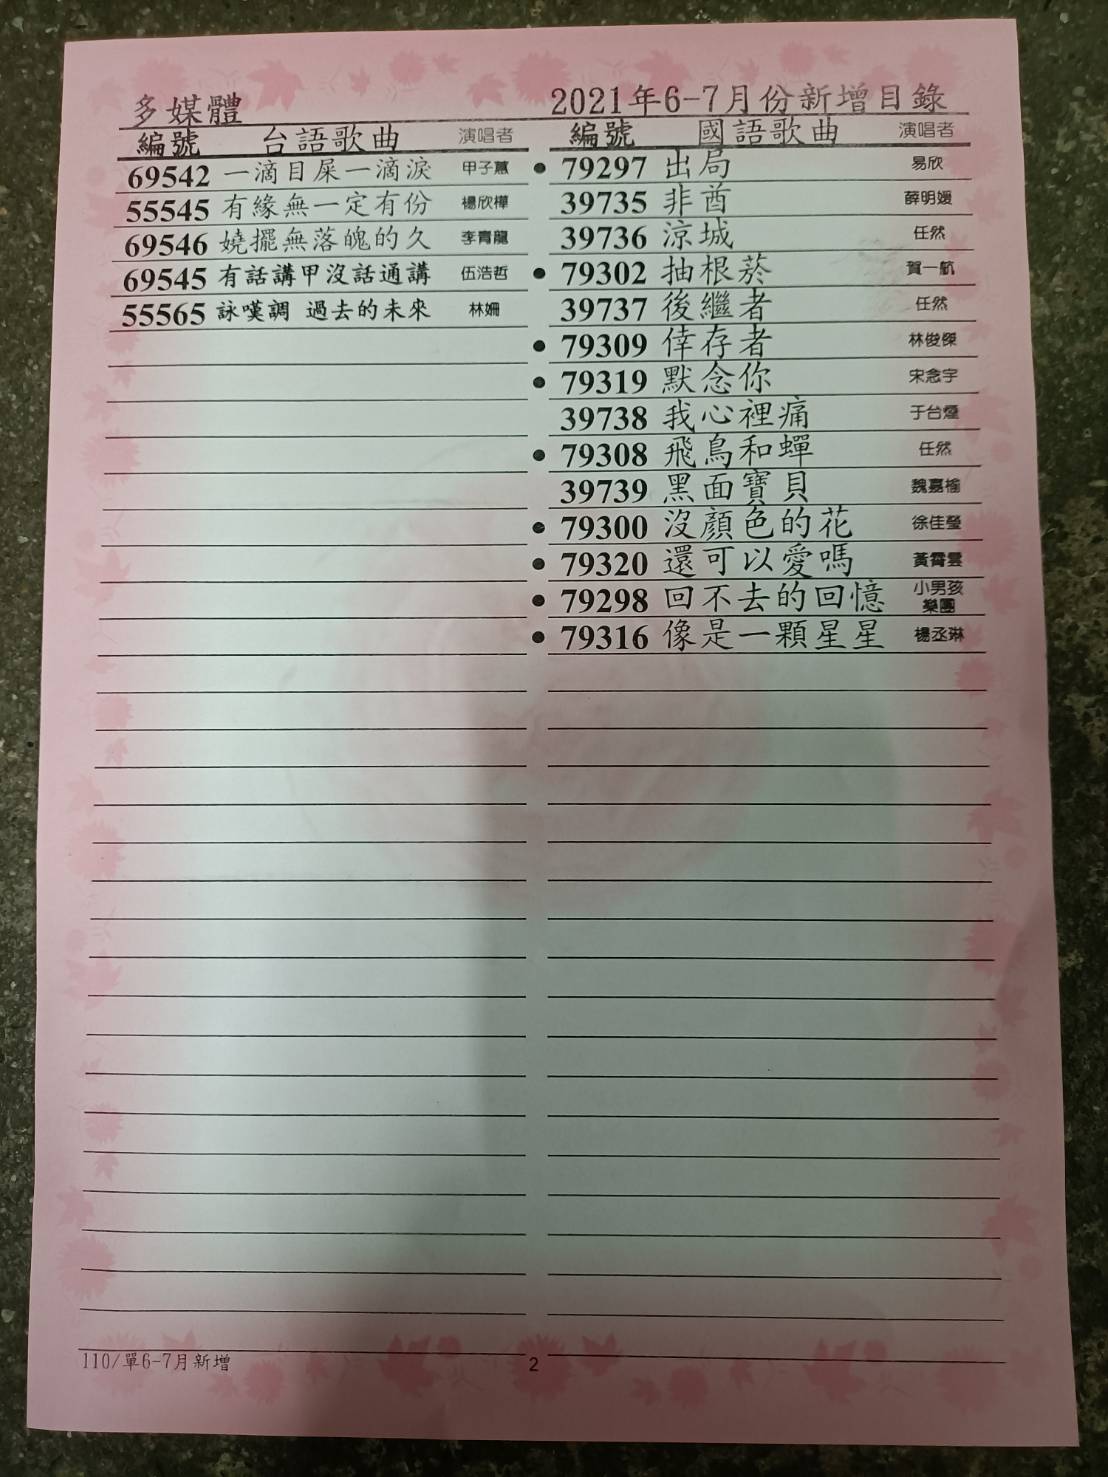 多媒體
2021年6-7月份新增目錄
編號 台語歌曲 演唱者
69542 一滴目屎一滴淚 甲子慧
55545 有緣無一定有份 楊欣樺
69546 嬈擺無落魄的久 李青龍
69545 有話講甲沒話通講 伍浩哲
55565 詠嘆調 過去的未來 林姍
編號 國語歌曲 演唱者
• 79297 出局 易欣
39735 非酋 薛明媛
39736 涼城 任然
• 79302 抽根菸 賀一航
39737 後繼者 任然
• 79309 倖存者 林俊傑
• 79319 默念你 宋念宇
39738 我心裡痛 于台煙
• 79308 飛鳥和蟬 任然
39739 黑面寶貝 魏嘉榆
• 79300 沒顏色的花 徐佳瑩
• 79320 還可以愛嗎 黃霄雲
• 79298 回不去的回憶 小男孩
樂團
• 79316 像是一顆星星 楊丞琳
110/單6-7月新增
2